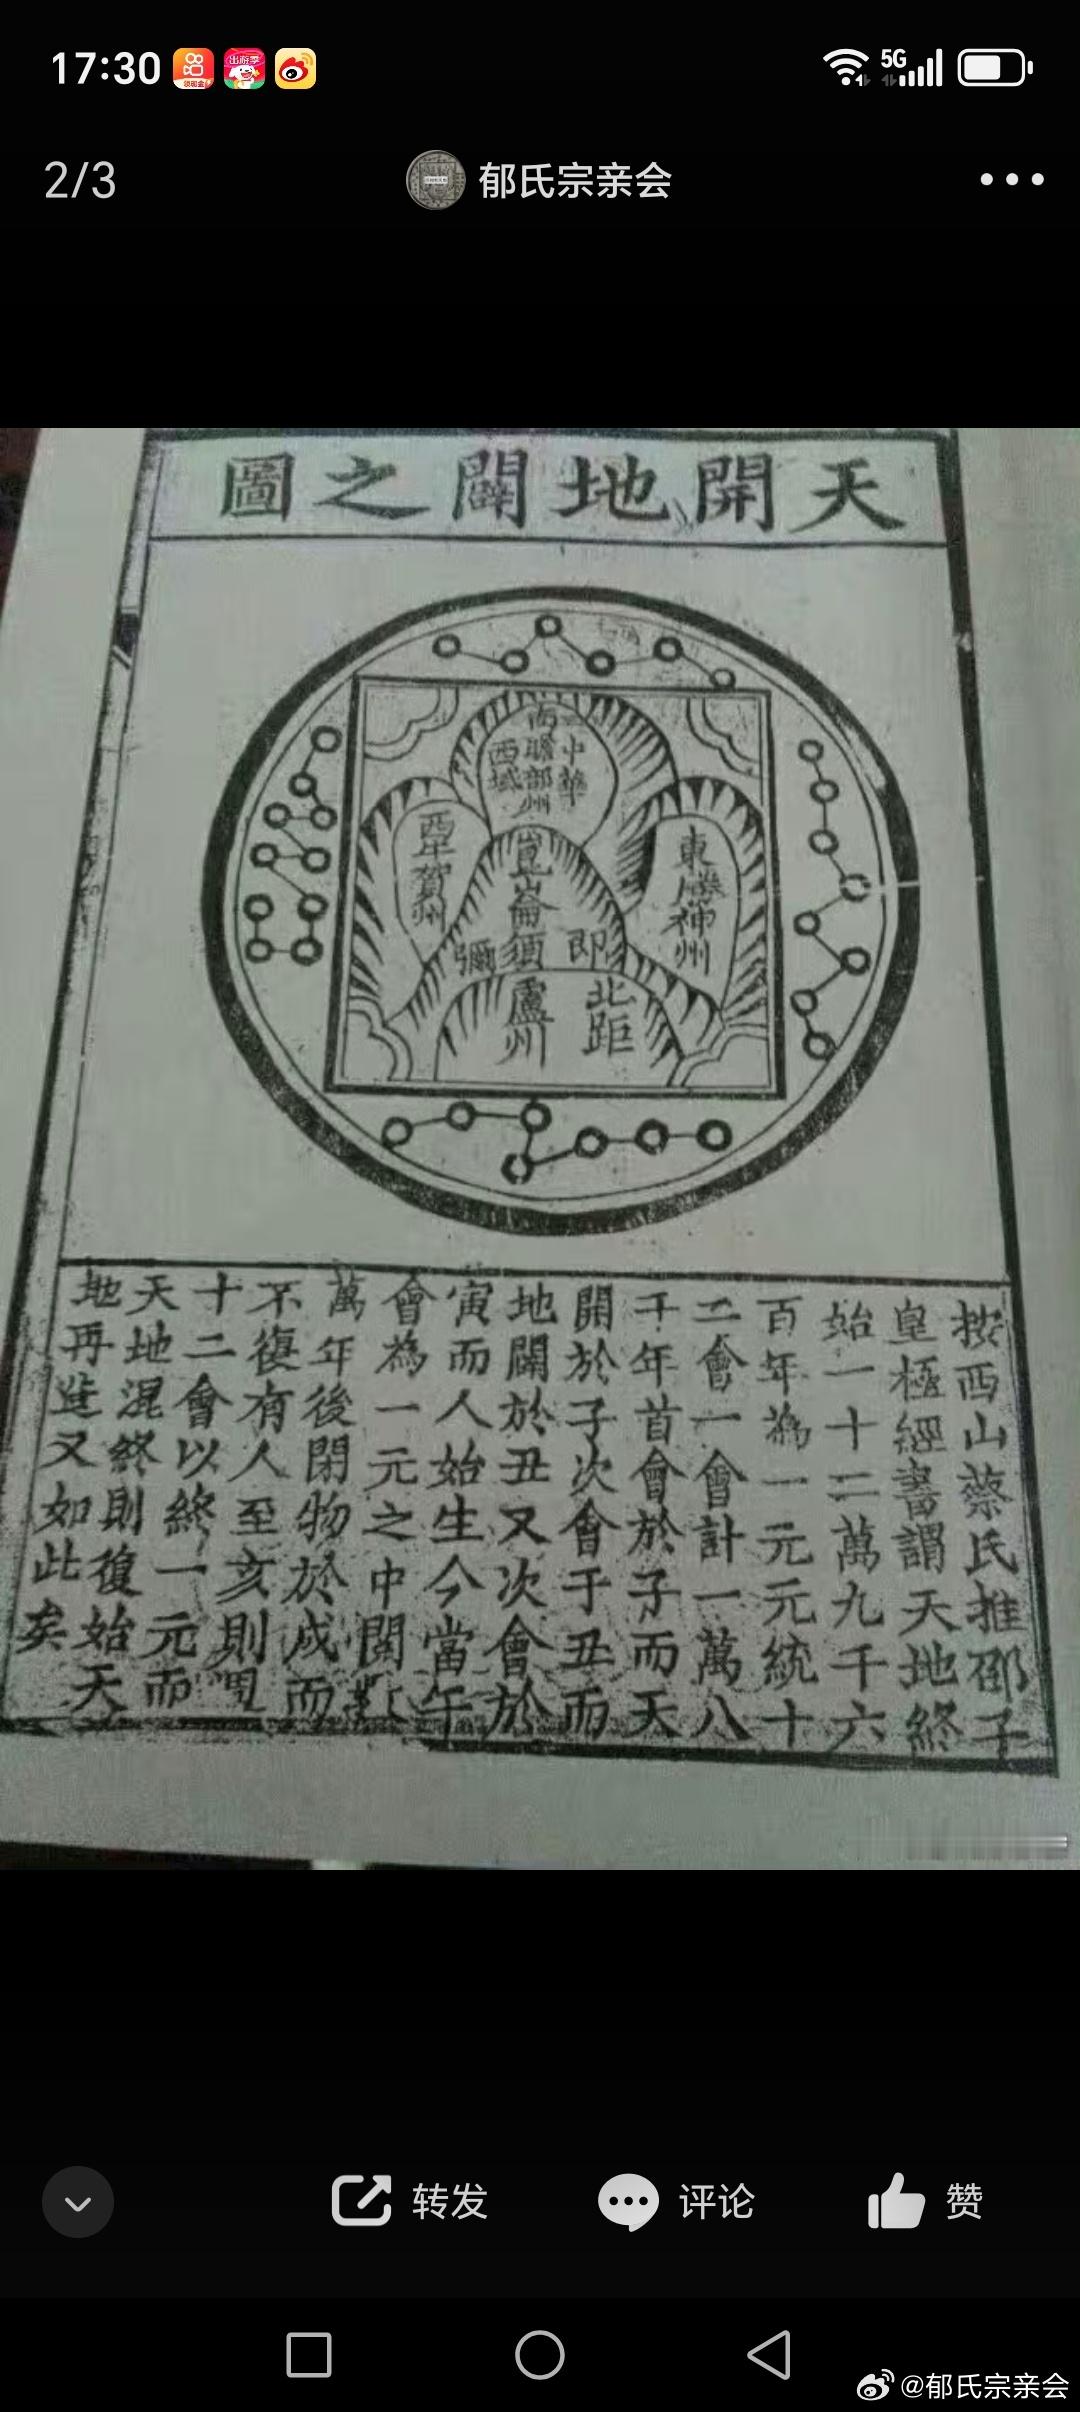 17:30
5G
2/3
郁氏宗亲会
天開地闢之圖
中華
南贍部州
西域
東勝神州
西牛賀州
崑崙
即須彌
北距
盧州
按西山蔡氏推邵子
皇極經書謂天地終
始一十二萬九千六
百年為一元元統十
二會一會計一萬八
千年首會於子而天
開於子次會于丑而
地闢於丑又次會於
寅而人始生今當午
會為一元之中閱
萬年後閉物於戌而
不復有人至亥則
十二會以終一元而
天地混終則復始天
地再造又如此矣
转发
评论
赞
@郁氏宗亲会